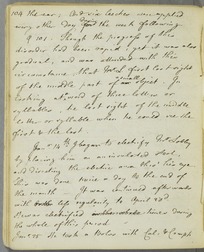 104 the ear; & a vis leeches were applied
every other day for the week following.
§ 103. Though the progress of this
disorder had been rapid, yet it was also
gradual, and was attended with this
circumstance, that he first lost sight
of the middle part of any small object. In
looking at a word of three letters or
syllables he lost sight of the middle
letter or syllable when he could see the
first & the last.
Jan. we began to electrify
by placing him in an insulated stool,
and directing the electric aura thro' his eyes.
This was done twice a day to the end of
the month. It was continued afterwards
with regularity to April 28.
He was electrified times during
the whole of this period.
Jan. 25 He took a Bolus with Cal. & Camph